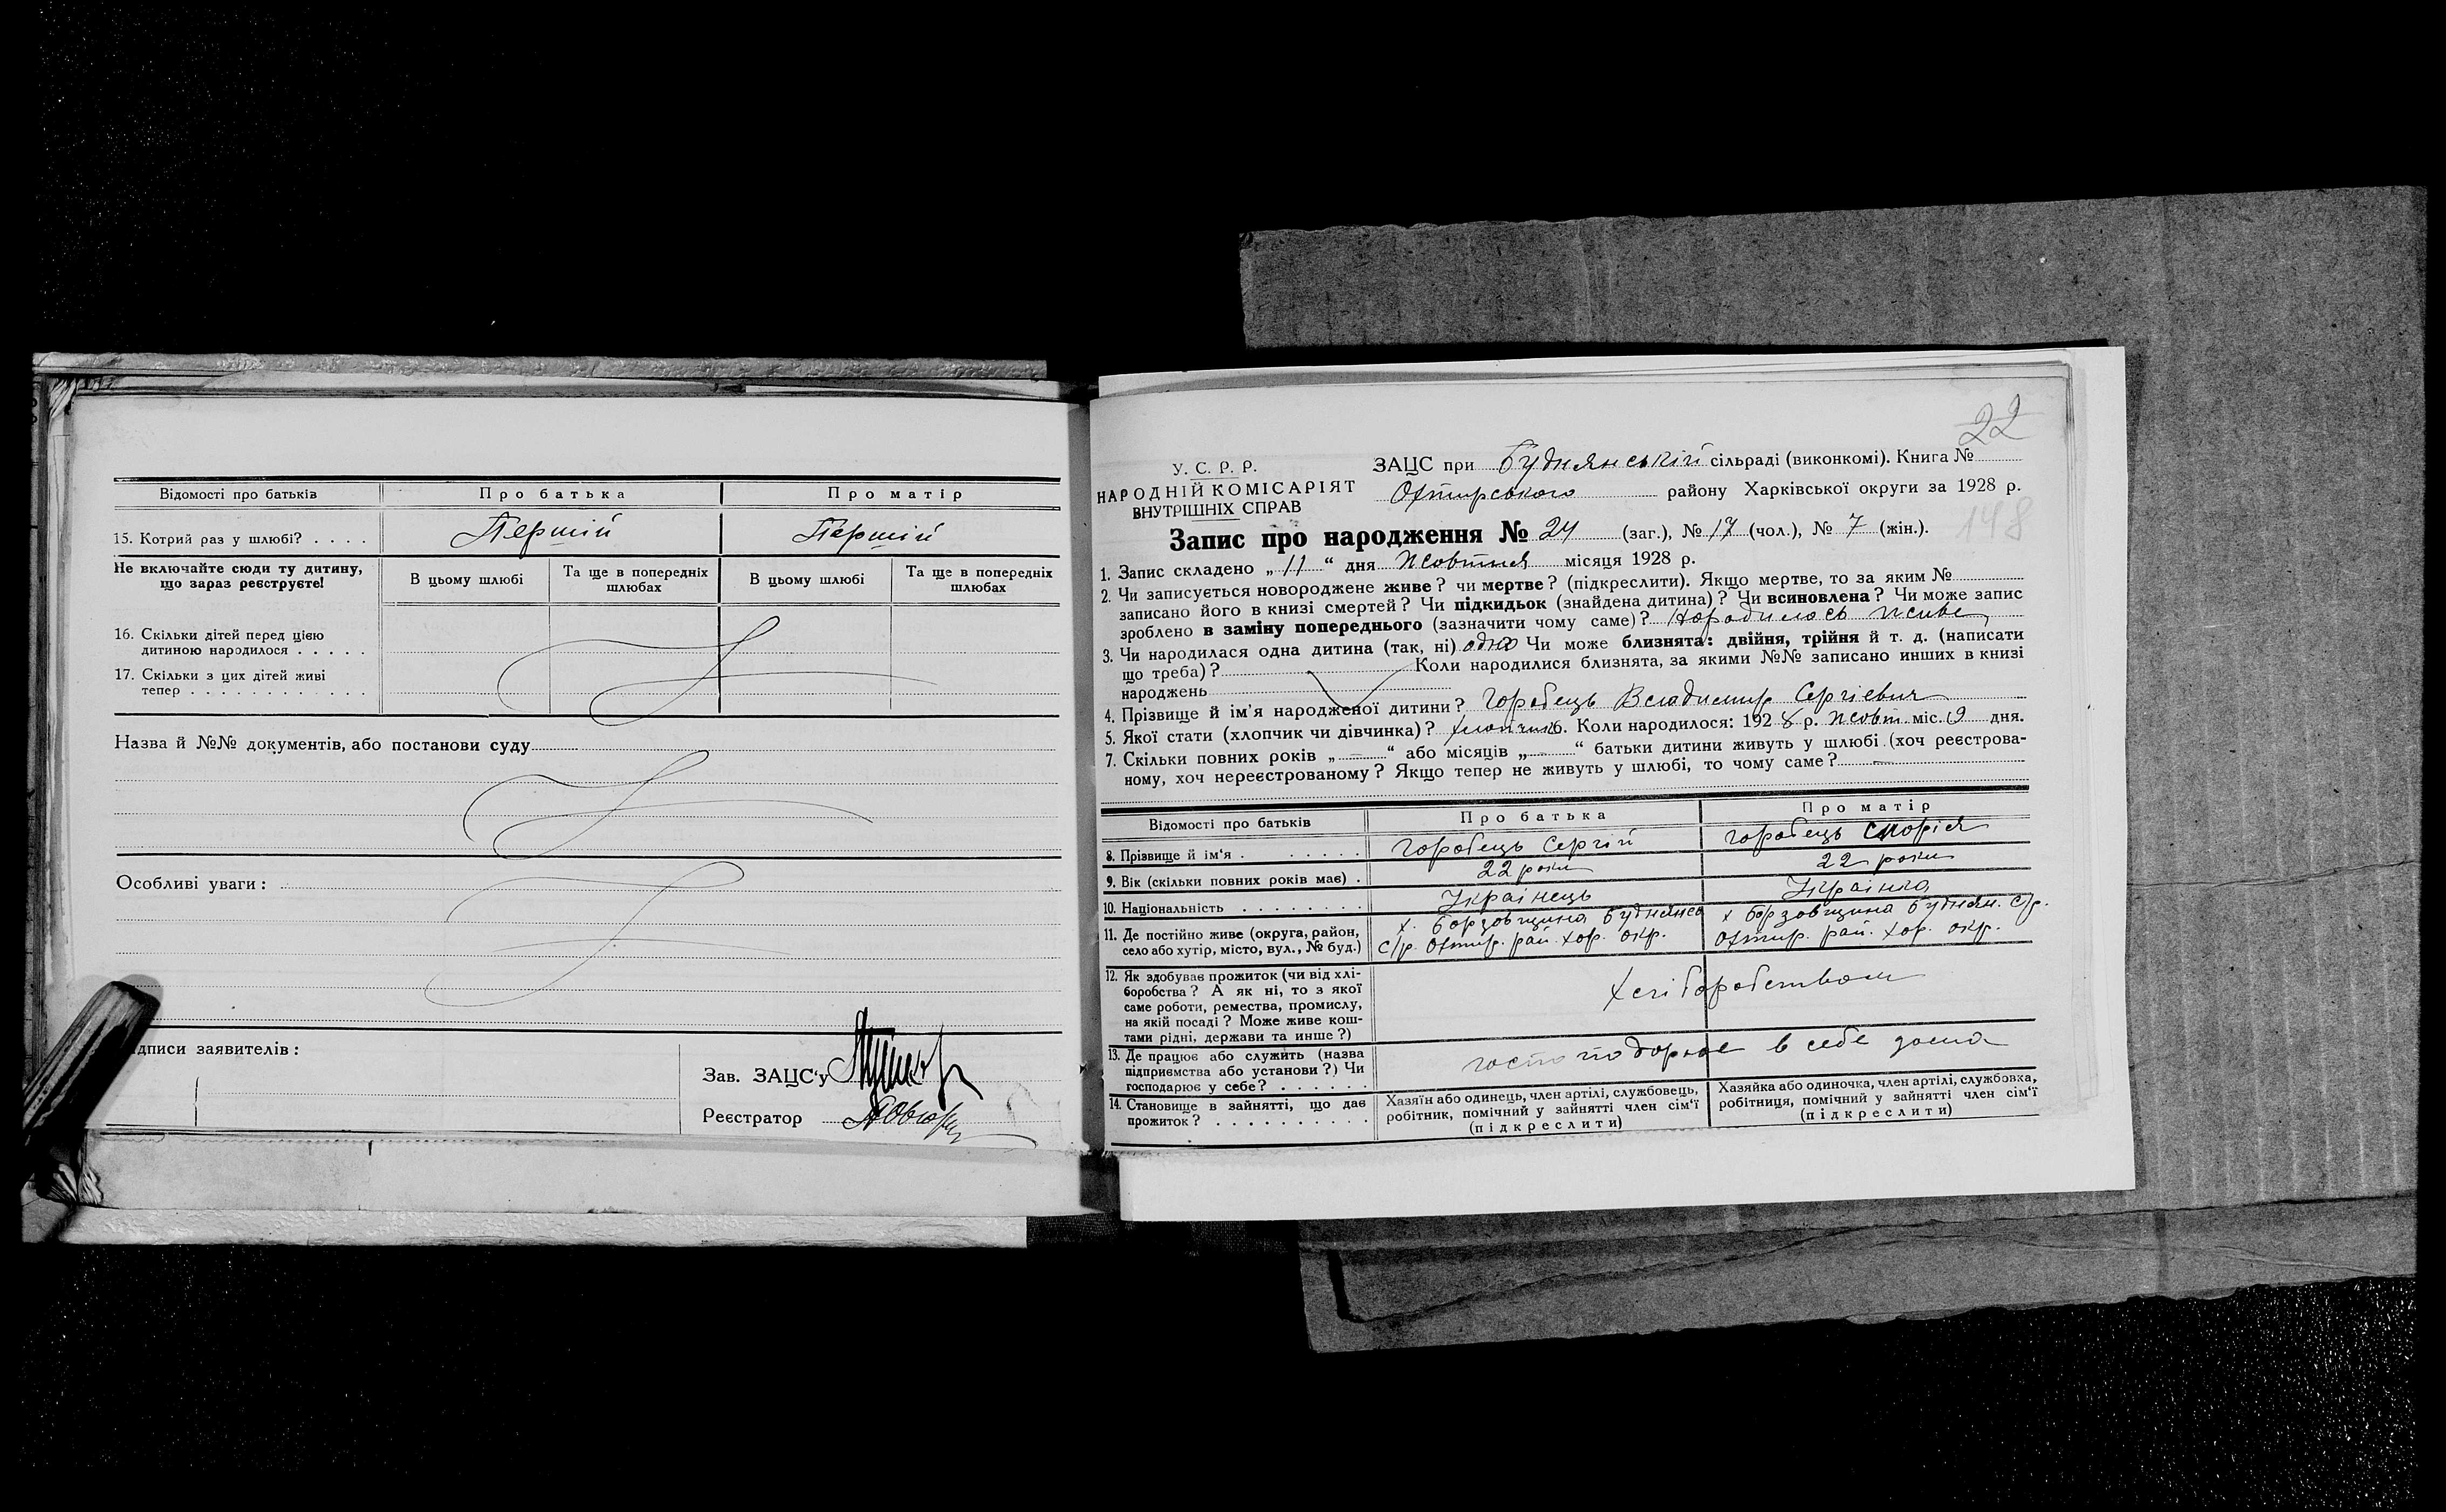 Відомості про батьків Про батька Про матір
15. Котрий раз у шлюбі? . . . . Перший Перший
Не включайте сюди ту дитину, що зараз реєструєте!
В цьому шлюбі Та ще в попередніх шлюбах В цьому шлюбі Та ще в попередніх шлюбах
16. Скільки дітей перед цією
дитиною народилося . . . . .
17. Скільки з цих дітей живі
тепер . . . . . . . . . . . .
Назва й №№ документів, або постанови суду
Особливі уваги:
дписи заявителів:
Зав. ЗАЦС'у
Реєстратор
22
У. С. Р. Р.
НАРОДНІЙ КОМІСАРІЯТ
ВНУТРІШНІХ СПРАВ
ЗАЦС при Буднянській сільраді (виконкомі). Книга №
Охтирського району Харківської округи за 1928 р.
148
Запис про народження № 24 (заг.), № 17 (чол.), № 7 (жін.).
1. Запис складено „ 11 “ дня Жовтня місяця 1928 р.
2. Чи записується новороджене живе? чи мертве? (підкреслити). Якщо мертве, то за яким №
записано його в книзі смертей? Чи підкидьок (знайдена дитина)? Чи всиновлена? Чи може запис
зроблено в заміну попереднього (зазначити чому саме)? Народилось живе
3. Чи народилася одна дитина (так, ні) одна Чи може близнята: двійня, трійня й т. д. (написати
що треба)? Коли народилися близнята, за якими №№ записано инших в книзі
народжень
4. Прізвище й ім'я народженої дитини? Горобець Владимир Сергієвич
5. Якої стати (хлопчик чи дівчинка)? хлопчик 6. Коли народилося: 1928 р. жовт. міс. 9 дня.
7. Скільки повних років „ — “ або місяців „ — “ батьки дитини живуть у шлюбі (хоч реєстрова-
ному, хоч нереєстрованому? Якщо тепер не живуть у шлюбі, то чому саме? —
Відомості про батьків Про батька Про матір
8. Прізвище й ім'я . . . . . . Горобець Сергій Горобець Марія
9. Вік (скільки повних років має) . 22 роки 22 роки
10. Національність . . . . . . . . Українець Українка
11. Де постійно живе (округа, район,
село або хутір, місто, вул., № буд.)
х. Борзовщина Буднянса
с/р. Охтир. рай. Хар. окр.
х Борзовщина Буднян. с/р.
Охтир. рай. Хар. окр.
12. Як здобуває прожиток (чи від хлі-
боробства? А як ні, то з якої
саме роботи, ремества, промислу,
на якій посаді? Може живе кош-
тами рідні, держави та инше?)
Хліборобством
13. Де працює або служить (назва
підприємства або установи?) Чи
господарює у себе? . . . . . .
господорює в себе дома
14. Становище в зайнятті, що дає
прожиток? . . . . . . . . . .
Хазяїн або одинець, член артілі, службовець,
робітник, помічний у зайнятті член сім'ї
(підкреслити)
Хазяйка або одиночка, член артілі, службовка,
робітниця, помічний у зайнятті член сім'ї
(підкреслити)